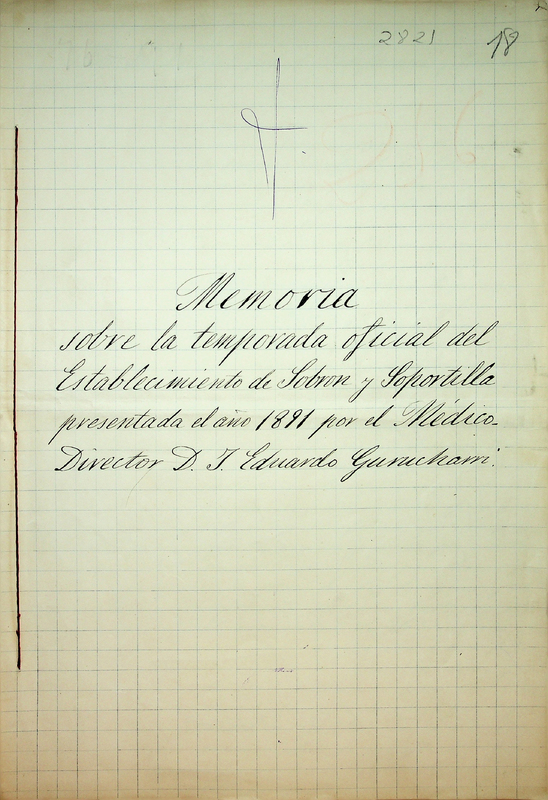 2821
18
Memoria
sobre la temporada oficial del
Establecimiento de Sobron y Soportilla
presentada el año 1891 por el Médico-
Director D. J. Eduardo Gurucharri.